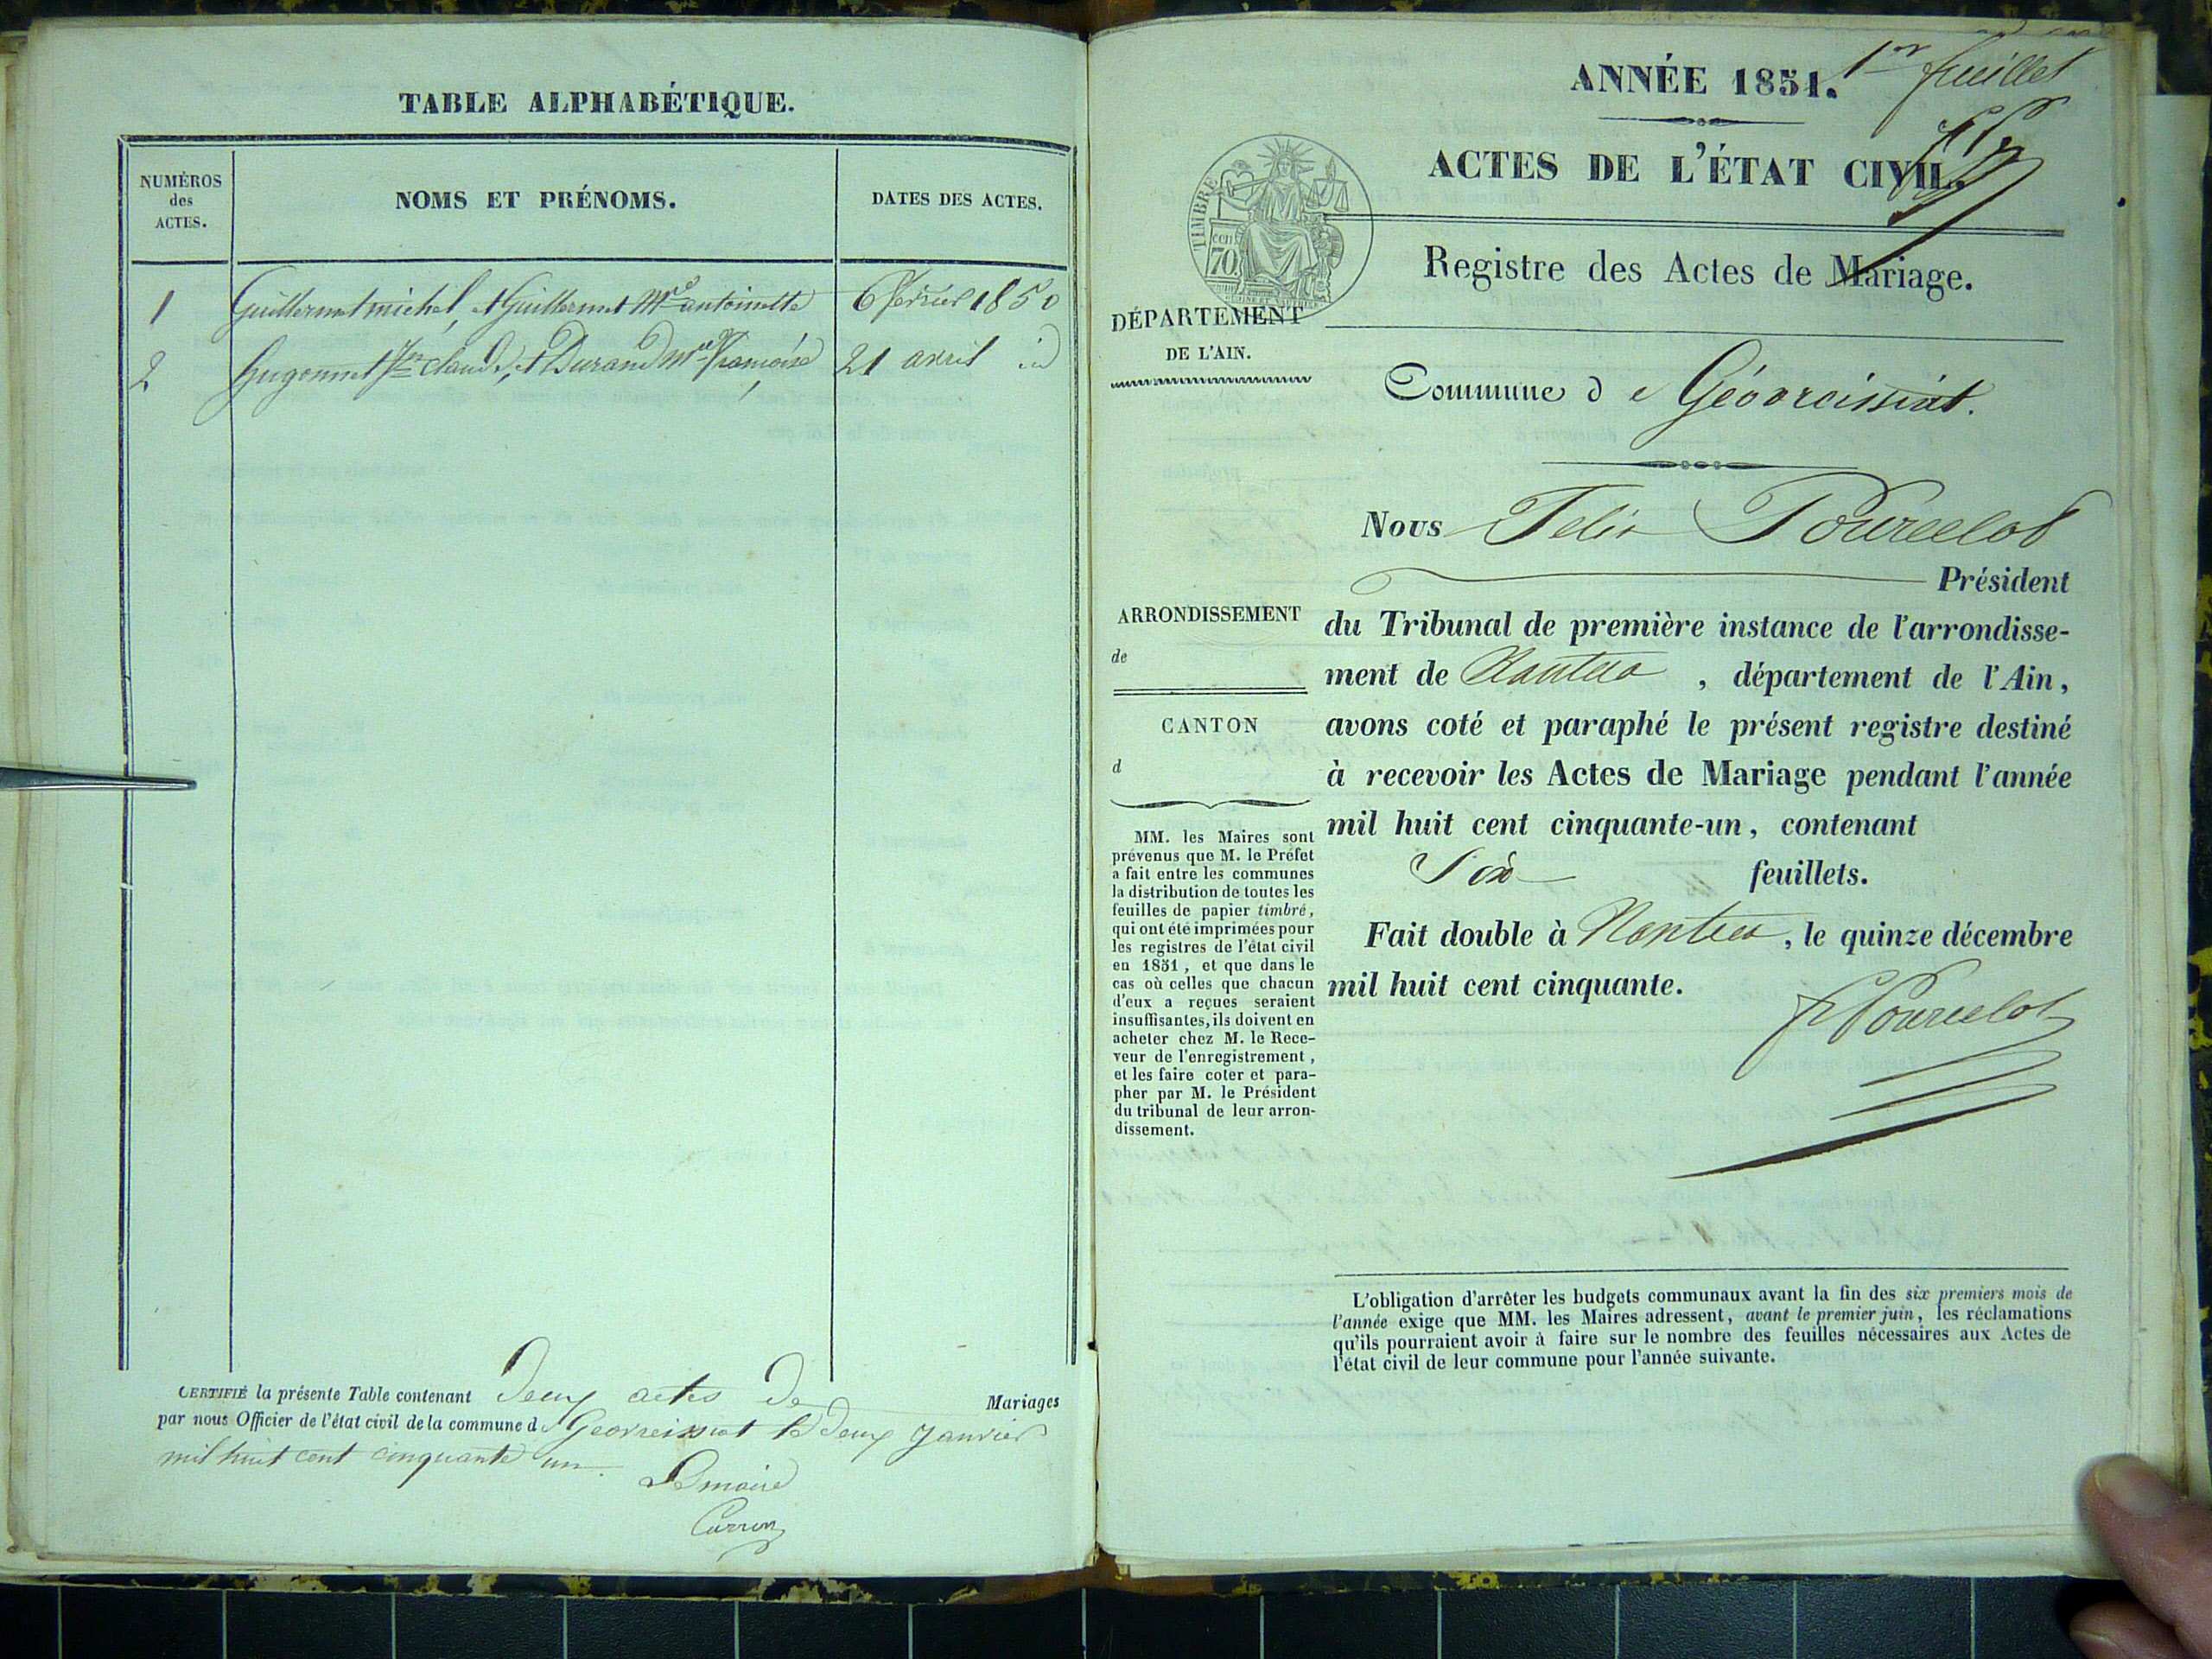 TABLE ALPHABÉTIQUE.
NUMÉROS
des
ACTES.
NOMS ET PRÉNOMS.
DATES DES ACTES.
1 Guillermet michel, et Guillermet Mie antoinette 6 février 1850
2 hugonnet Jn claude, et Durand Mie Françoise 21 avril id
CERTIFIÉ la présente Table contenant Deux actes De Mariages
par nous Officier de l'état civil de la commune de Geovreissiat le Deux Janvier
mil huit cent cinquante un.
Le maire
Carron
ANNÉE 1851.
1er feuillet
ACTES DE L'ÉTAT CIVIL.
TIMBRE
cent
70
Registre des Actes de Mariage.
DÉPARTEMENT
DE L'AIN.
Commune de Géovreissiat.
Nous Felix Pourcelot
Président
ARRONDISSEMENT
de
CANTON
d
du Tribunal de première instance de l'arrondisse-
ment de Nantua, département de l'Ain,
avons coté et paraphé le présent registre destiné
à recevoir les Actes de Mariage pendant l'année
mil huit cent cinquante-un, contenant
Six feuillets.
Fait double à Nantua, le quinze décembre
mil huit cent cinquante.
F Pourcelot
MM. les Maires sont
prévenus que M. le Préfet
a fait entre les communes
la distribution de toutes les
feuilles de papier timbré,
qui ont été imprimées pour
les registres de l'état civil
en 1851, et que dans le
cas où celles que chacun
d'eux a reçues seraient
insuffisantes, ils doivent en
acheter chez M. le Rece-
veur de l'enregistrement,
et les faire coter et para-
pher par M. le Président
du tribunal de leur arron-
dissement.
L'obligation d'arrêter les budgets communaux avant la fin des six premiers mois de
l'année exige que MM. les Maires adressent, avant le premier juin, les réclamations
qu'ils pourraient avoir à faire sur le nombre des feuilles nécessaires aux Actes de
l'état civil de leur commune pour l'année suivante.